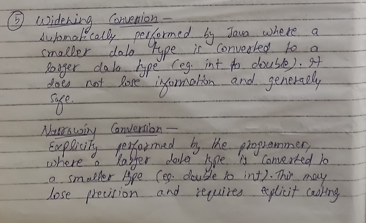 ⑤ Widening Conversion —
Automatically performed by Java where a
smaller data type is converted to a
larger data type (eg. int to double). It
does not lose information and generally
safe.
Narrowing Conversion —
Explicitly performed by the programmer,
where a larger data type is converted to
a smaller type (eg. double to int). This may
lose precision and requires explicit casting